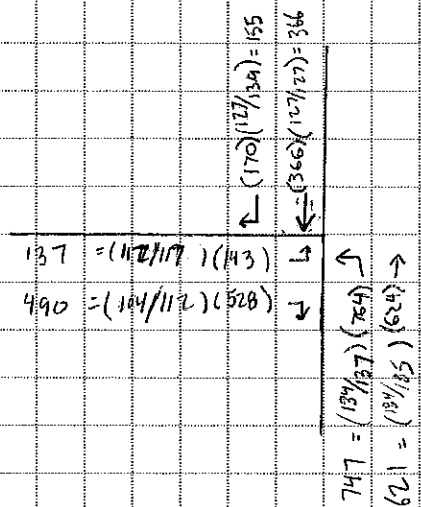 ↲ (170)(127/139)=155
↲ (366)(127/127)=366
137 =(112/117)(143) ↲
490 =(104/112)(528) ↴
747 = (134/137)(764) ↰
621 = (134/135)(624) ↱